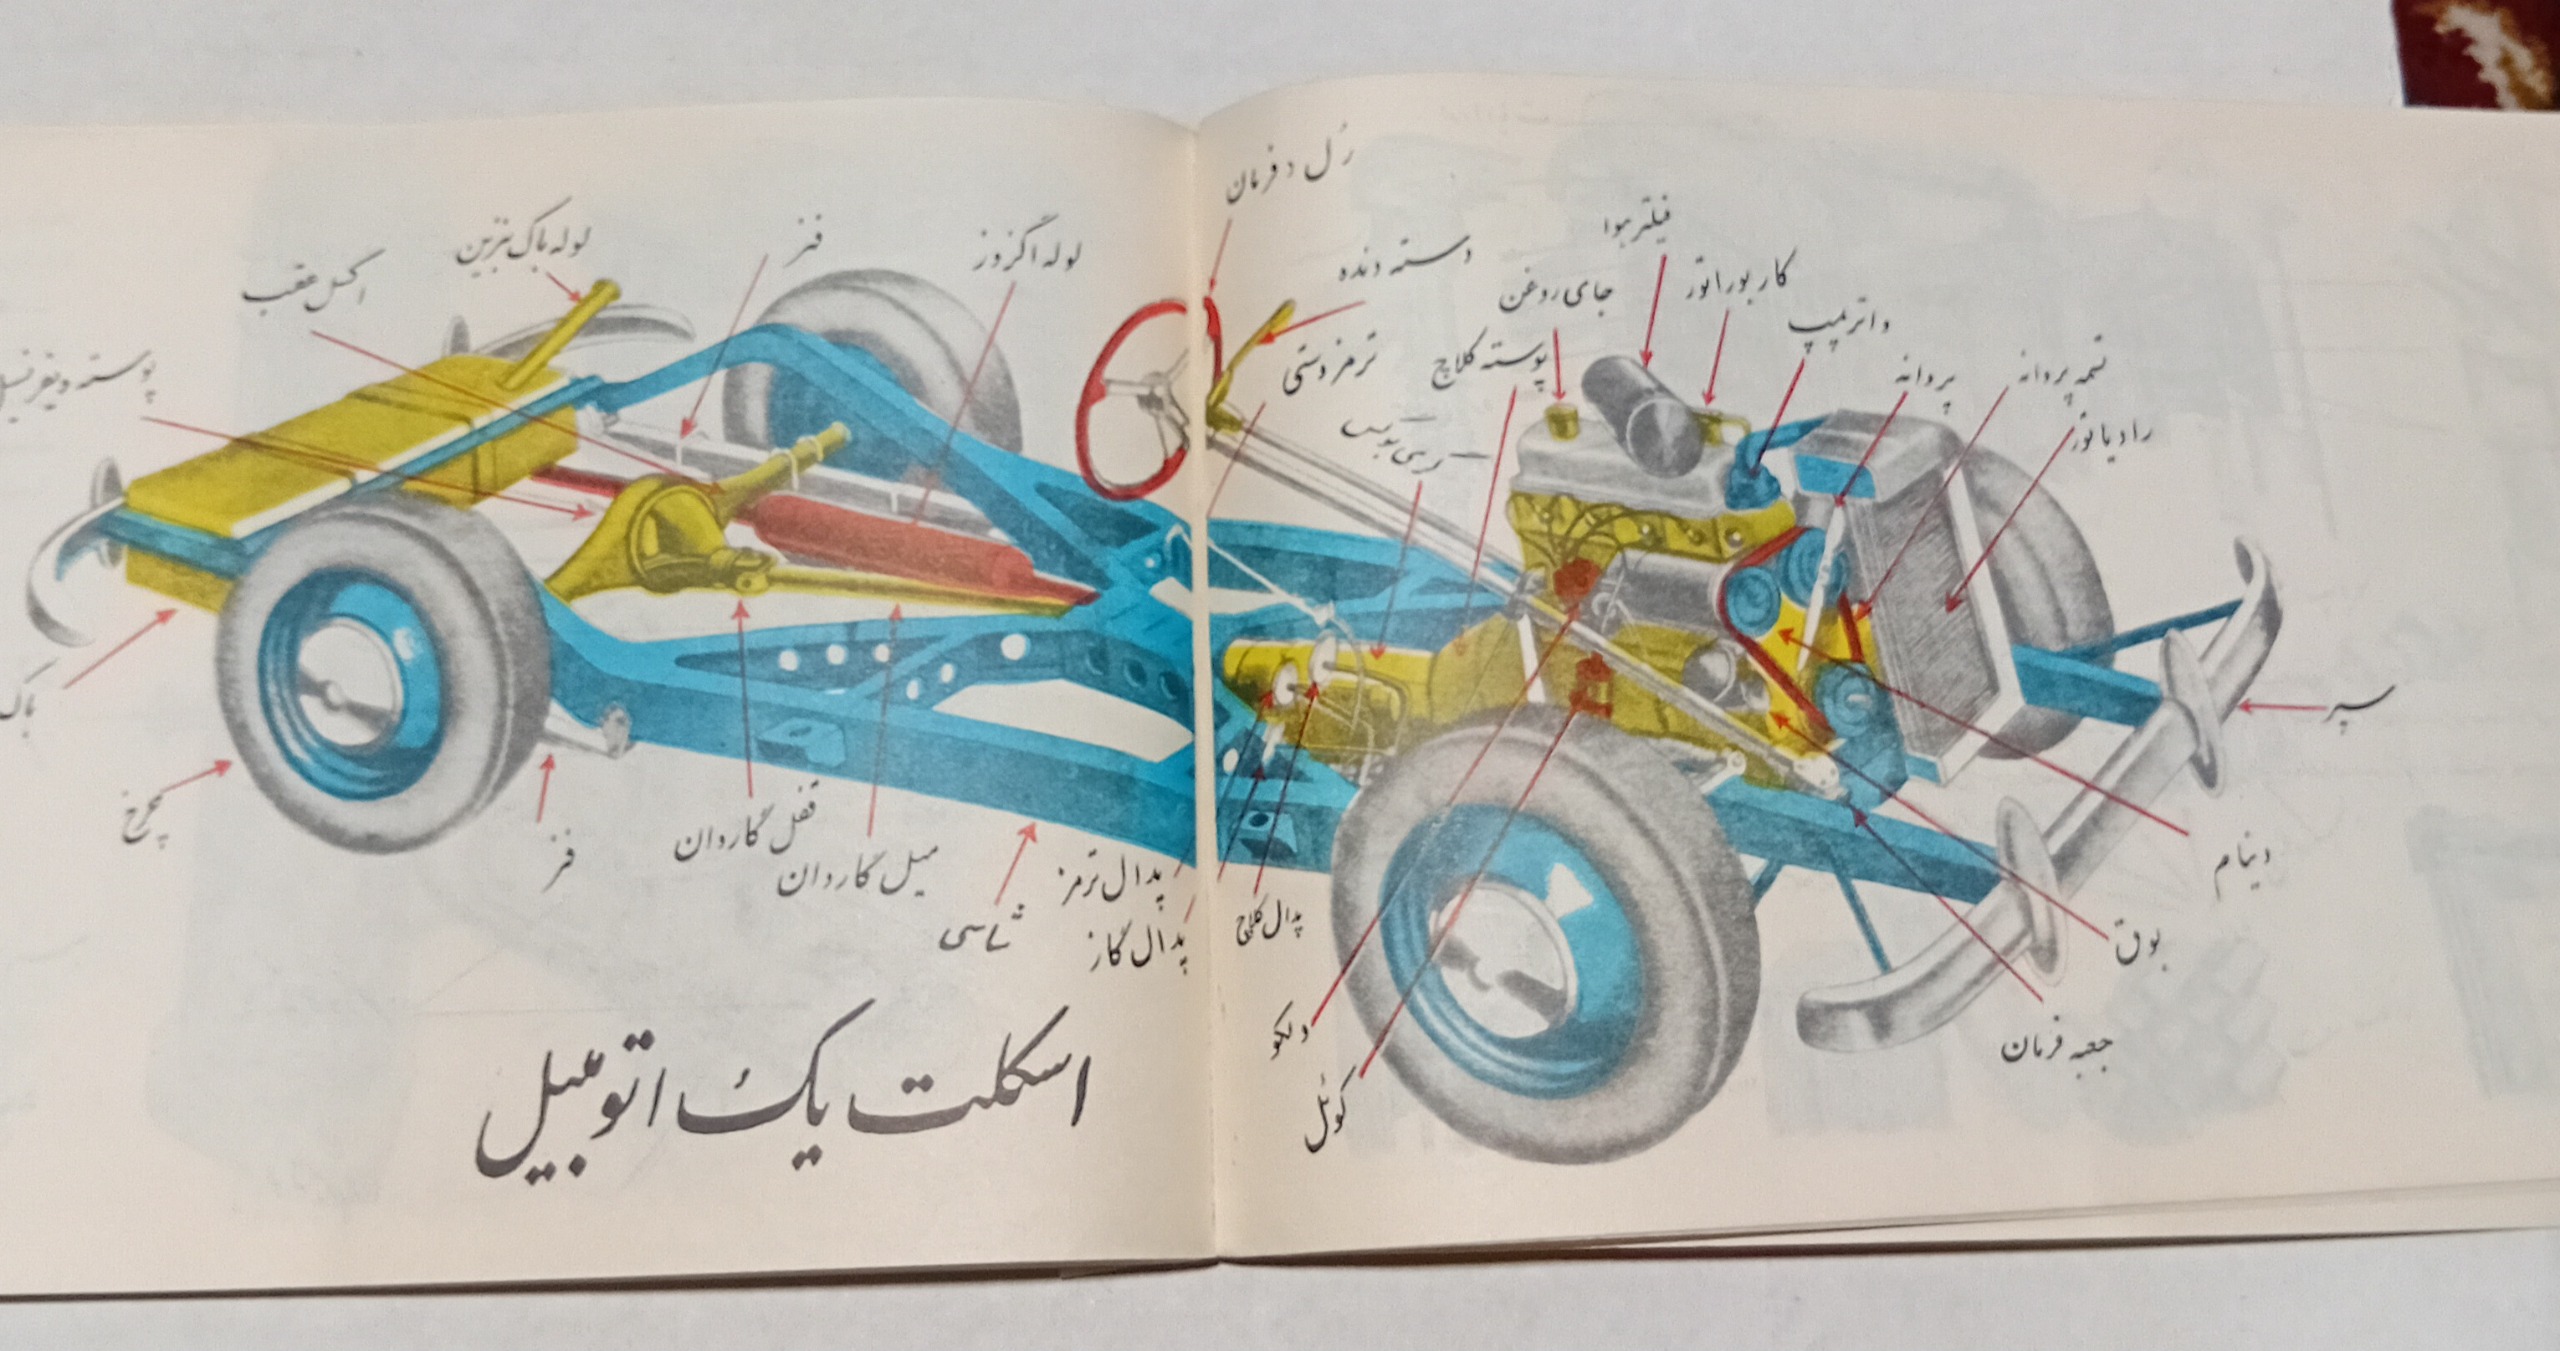 رُل و فرمان
فیلتر هوا
دسته دنده
جای روغن
کاربوراتور
واترپمپ
ترمز دستی
پوسته کلاچ
پروانه
تسمه پروانه
رادیاتور
سپر
دینام
بوق
جعبه فرمان
پدال کلاچ
دلکو
کوئل
لوله اگزوز
فنر
لوله باک بنزین
اکسل عقب
پوسته دیفرنسیل
باک
چرخ
فنر
قفل گاردان
میل گاردان
شاسی
پدال ترمز
پدال گاز
اسکلت یک اتومبیل